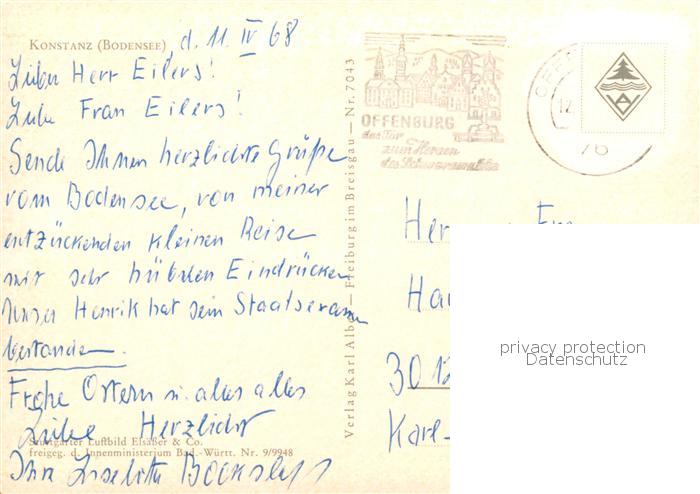 KONSTANZ (BODENSEE), d. 11. IV 68
Lieber Herr Eilers!
Liebe Frau Eilers!
Sende Ihnen herzlichste Grüße
vom Bodensee, von meiner
entzückenden kleinen Reise
mit sehr hübschen Eindrücken
Unser Henrik hat sein Staatsexamen
bestanden.
Frohe Ostern u. alles alles
Liebe Herzlichst
Stuttgarter Luftbild Elsäßer & Co.
freigeg. d. Innenministerium Bad.-Württ. Nr. 9/9948
Ihre
Verlag Karl Alber — Freiburg im Breisgau — Nr. 7043
OFFENBURG
das Tor
zum Herzen
des Schwarzwaldes
OFFEN
12.
76
Her
Fra
Hau
30 12
Karl-
privacy protection
Datenschutz